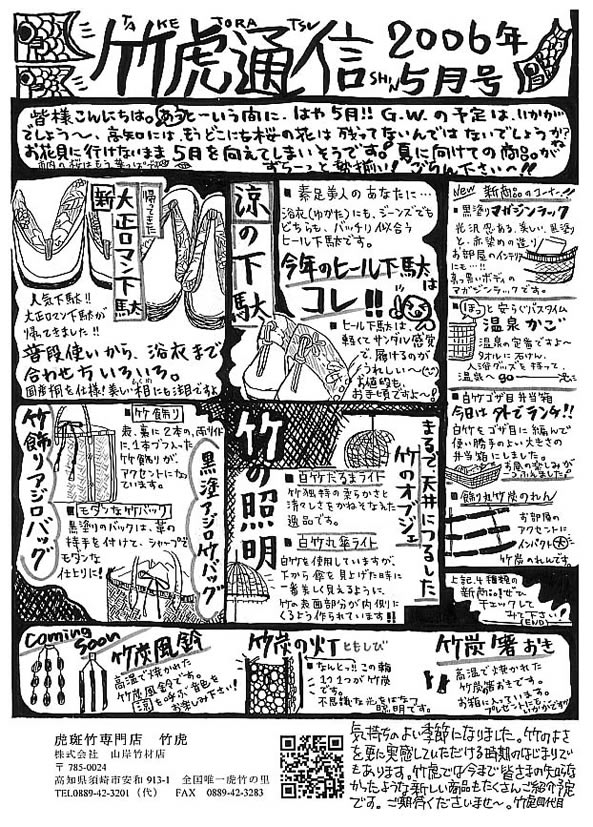 TAKE TORA TSU SHIN
竹虎通信
2006年
5月号
皆様こんにちは。あっとーいう間に、はや5月!! G.W.の予定は、いかが
でしょう〜、高知には、もうどこにも桜の花は残ってないんではないでしょうか?
お花見に行けないまま5月を向えてしまいそうです。夏に向けての商品が
ずらーっと勢揃い!ごらん下さい〜!!
帰ってきた
新
大正ロマン下駄
人気下駄!!
大正ロマン下駄が
帰ってきました!!
普段使いから、浴衣まで
合わせ方いろいろ。
国産桐を仕様!美しい柾にも注目ですよ
涼の下駄
■素足美人のあなたに…
浴衣(ゆかた)にも、ジーンズでも
どちらも、バッチリ似合う
ヒール下駄です。
今年のヒール下駄は
コレ!!
■ヒール下駄は、
軽くてサンダル感覚
で、履けるのが
うれしい〜
お値段も、
お手頃ですよ〜!
New 新商品のコーナー!!
■黒塗りマガジンラック
光沢ある、美しい、黒塗り
と、赤染めの造り
お部屋のインテリア
にも…!!
真っ黒いボディの
マガジンラックです。
■ほっと安らぐバスタイム
温泉かご
温泉の定番ですよ〜
タオルに石けん、
入浴グッズを持って、
温泉へGO
■白竹ゴザ目弁当箱
今日は外でランチ!!
白竹をゴザ目に編んで
使い勝手のよい大きさの
弁当箱にしました。
お昼の楽しみが
一つふえました!
■飾り丸竹炭のれん
お部屋の
アクセントに
インパクト大
竹炭のれんです。
上記、4種類の
新商品!ぜひ
チェックして
みて下さい?
(END)
竹飾りアジロバッグ
■竹飾り
表、裏に2本の、両サイド
に、1本づつ入った
竹飾りが、
アクセントになっ
ています。
■モダンな竹バッグ
黒塗りのバッグは、茶の
持手を付けて、シャープで
モダンな
仕上りに!
黒塗アジロ竹バッグ
竹の照明
まるで、天井につるした
竹のオブジェ
■白竹だるまライト
竹独特の柔らかさと
清々しさをかねそなえた
逸品です。
■白竹丸傘ライト
白竹を使用していますが、
下から傘を見上げた時に
一番美しく見えるように、
竹の表面部分が内側に
くるよう作られています!!
Coming Soon
竹炭風鈴
高温で焼かれた
竹炭風鈴です。
涼を呼ぶ音色を
お楽しみ下さい!
竹炭の灯 ともしび
■なんとっ!!この輪
1つ1つが竹炭
です。
不思議な光をはなつ
照明です。
竹炭箸おき
高温で焼かれた
竹炭箸おきです。
お箱に入っています。
プレゼントにもいかがですか?
虎斑竹専門店 竹虎
株式会社 山岸竹材店
〒785-0024
高知県須崎市安和913-1 全国唯一虎竹の里
TEL0889-42-3201(代) FAX 0889-42-3283
気持ちのよい季節になりました。竹のよさ
を更に実感していただける時期のはじまりで
もあります。竹虎では今まで皆さまの知らな
かったような新しい商品もたくさんご紹介予定
です。ご期待くださいませ〜。竹虎四代目